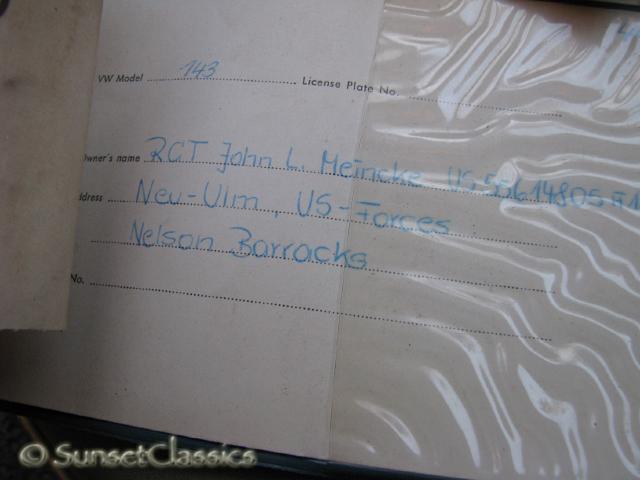 VW Model 143 License Plate No.
wner's name RCT John L. Meincke US
ddress Neu-Ulm, US-Forces
Nelson Barracks
No.
© SunsetClassics